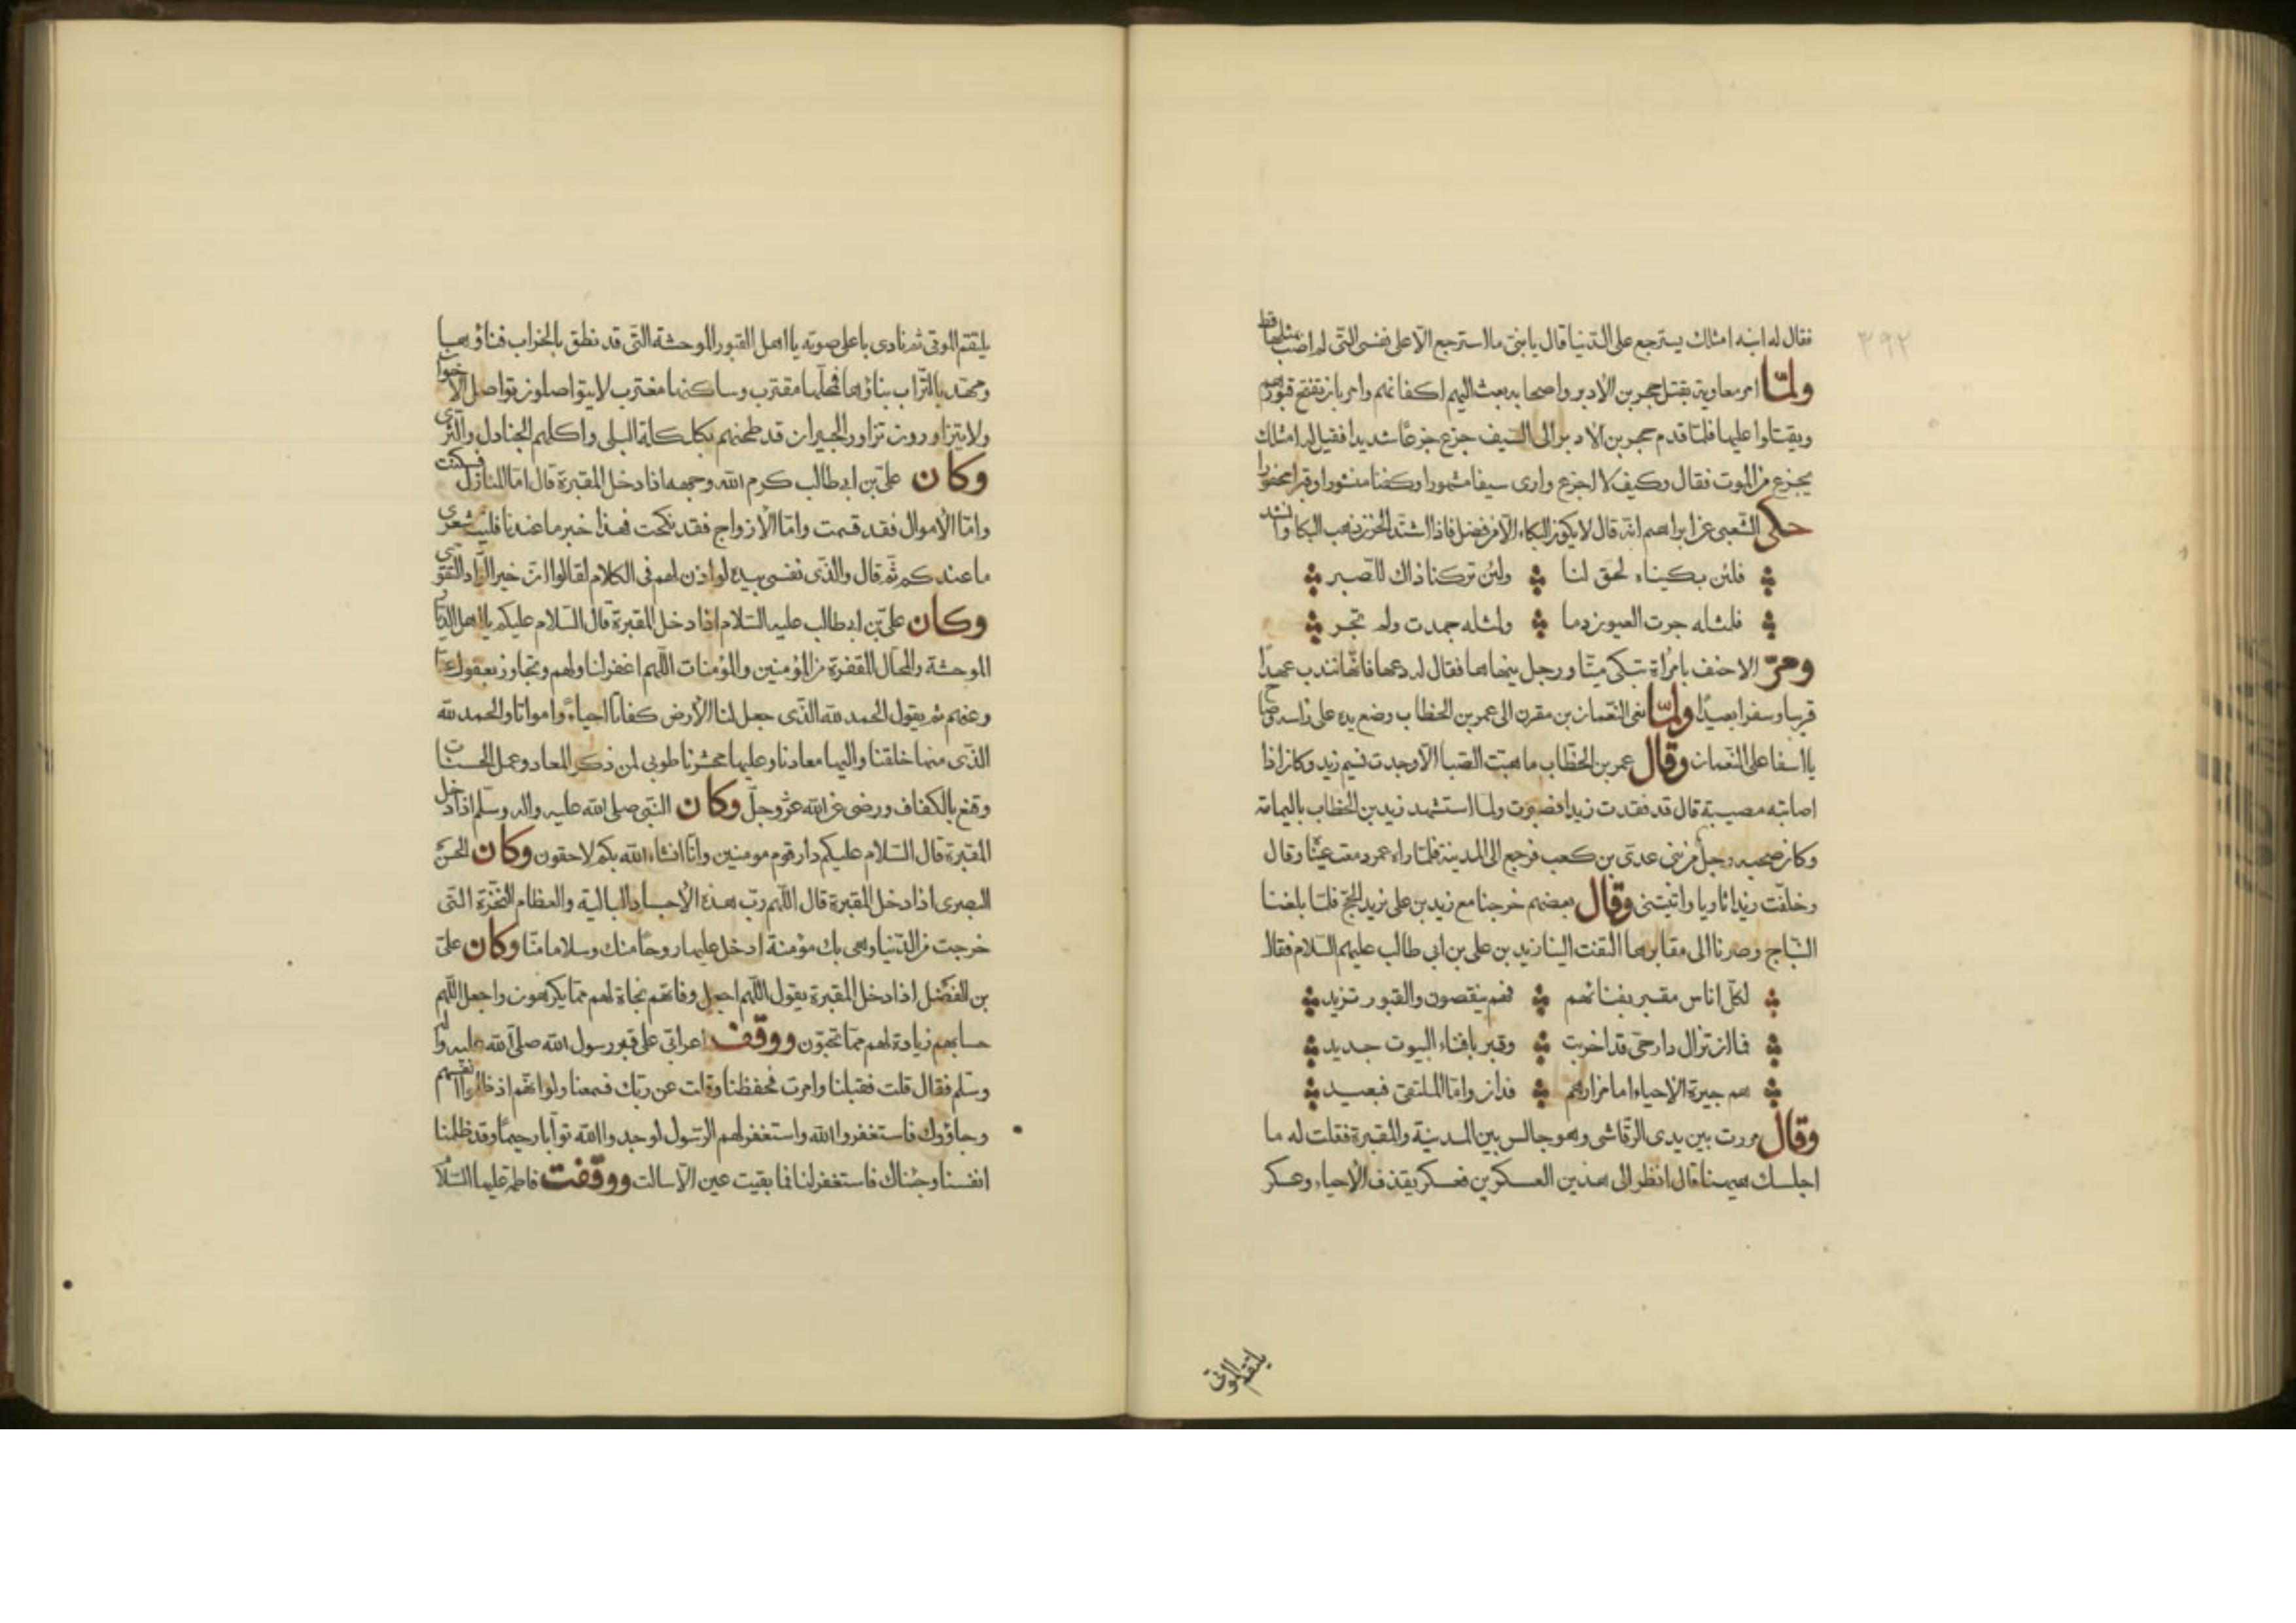 ٣٩٢
فقال له ابنه امثلك يسترجع على الدّنيا قال يا بنى ما استرجع الّا على نفسى التّى لم اصب بمثلها قط
ولمّا امر معاوية بقتل حجر بن الادبر واصحابه بعث اليهم اكفانهم وامر بان تفتح قبورهم
ويقتلوا عليها فلمّا قدم حجر بن الادبر الى السيف جزع جزعًا شديدا فقيل له امثلك
يجزع من الموت فقال وكيف لا اجزع وارى سيفا مشهورا وكفنا منشورا وقبرا محفورا
حكى الشّعبى عن ابراهيم انّه قال لا يكون البكاء الّا من فضل فاذا اشتد الحزن ذهب البكا وانشد
فلئن بكيناه لحق لنا ولئن تركنا ذاك للصّبر
فلمثله جرت العيون دما ولمثله جمدت ولم تجر
ومرّ الاحنف بامرأة تبكى ميّتا ورجل ينهاها فقال له دعها فانّها تندب عهدًا
قريبا وسفرا بعيدًا ولمّا نعى النّعمان بن مقرن الى عمر بن الخطاب وضع يده على راسه وصاح
يا اسفا على النّعمان وقال عمر بن الخطّاب ما هبّت الصّبا الّا وجدت نسيم زيد وكان اذا
اصابته مصيبة قال قد فقدت زيدا فصبرت ولما استشهد زيد بن الخطاب باليمامة
وكان صحبه رجل من بنى عدىّ بن كعب فرجع الى المدينة فلمّا راه عمر دمعت عيناه وقال
وخلّفت زيدا ثاويا واتيتنى وقال بعضهم خرجنا مع زيد بن على نريد الحجّ فلمّا بلغنا
النّباج وصرنا الى مقابرها التفت الينا زيد بن على بن ابى طالب عليهم السّلام فقال
لكلّ اناس مقبر بفنائهم فهم ينقصون والقبور تزيد
فما ان تزال دار حىّ قد اخربت وقبر بافناء البيوت جديد
هم جيرة الاحياء اما مزارهم فدان وامّا الملتقى فبعيد
وقال مررت بين يدى الرقّاشى وهو جالس بين المدينة والمقبرة فقلت له ما
اجلسك هيهنا قال انظر الى هذين العسكرين فعسكر يقذف الاحياء وعسكر
يلتقم الموتى
يلتقم الموتى ثم نادى باعلى صوته يا اهل القبور الموحشة التّى قد نطق بالخراب فناؤها
ومهّد بالتّراب بناؤها فمحلّها مقترب وساكنها مغترب لا يتواصلون تواصل الاخوان
ولا يتزاورون تزاور الجيران قد طحنهم بكلكلة البلى واكلهم الجنادل والثّرى
وكان علىّ بن ابى طالب كرم الله وجهه اذا دخل المقبرة قال امّا المنازل فسكنت
وامّا الاموال فقد قسمت وامّا الازواج فقد نكحت فهذا خبر ما عندنا فليت شعرى
ما عندكم ثمّ قال والّذى نفسى بيده لو اذن لهم فى الكلام لقالوا انّ خير الزّاد التّقوى
وكان علىّ بن ابى طالب عليه السّلام اذا دخل المقبرة قال السّلام عليكم يا اهل الديار
الموحشة والمحال المقفرة من المؤمنين والمؤمنات اللّهم اغفر لنا ولهم وتجاوز بعفوك عنّا
وعنهم ثم يقول الحمد لله الّذى جعل لنا الأرض كفاتًا احياءً وامواتا والحمد لله
الّذى منها خلقنا واليها معادنا وعليها محشرنا طوبى لمن ذكر المعاد وعمل الحسنات
وقنع بالكفاف ورضى عن الله عزّ وجلّ وكان النّبى صلى الله عليه واله وسلّم اذا دخل
المقبرة قال السّلام عليكم دار قوم مومنين وانّا انشاء الله بكم لاحقون وكان الحسن
البصرى اذا دخل المقبرة قال اللّهم ربّ هذه الاجساد البالية والعظام النّخرة التّى
خرجت من الدّنيا وهى بك مؤمنة ادخل عليها روحًا منك وسلاما منّا وكان علىّ
بن الفضل اذا دخل المقبرة يقول اللّهم اجعل وفاتهم نجاة لهم ممّا يكرهون واجعل اللّهم
حسابهم زيادة لهم ممّا تحبّون ووقف اعرابّى على قبر رسول الله صلى الله عليه واله
وسلّم فقال قلت فقبلنا وامرت فحفظنا وقلت عن ربّك فسمعنا ولو انهم اذ ظلموا انفسهم
وجاؤوك فاستغفروا الله واستغفر لهم الرّسول لوجدوا الله توّابا رحيمًا وقد ظلمنا
انفسنا وجئناك فاستغفر لنا فما بقيت عين الّا سالت ووقفت فاطمة عليها السّلام